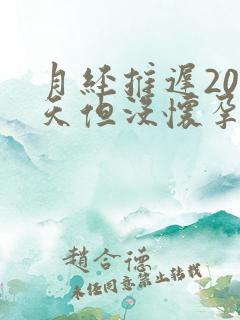 月经推遲20
天但没懷孕
趙合德
未经同意禁止转载